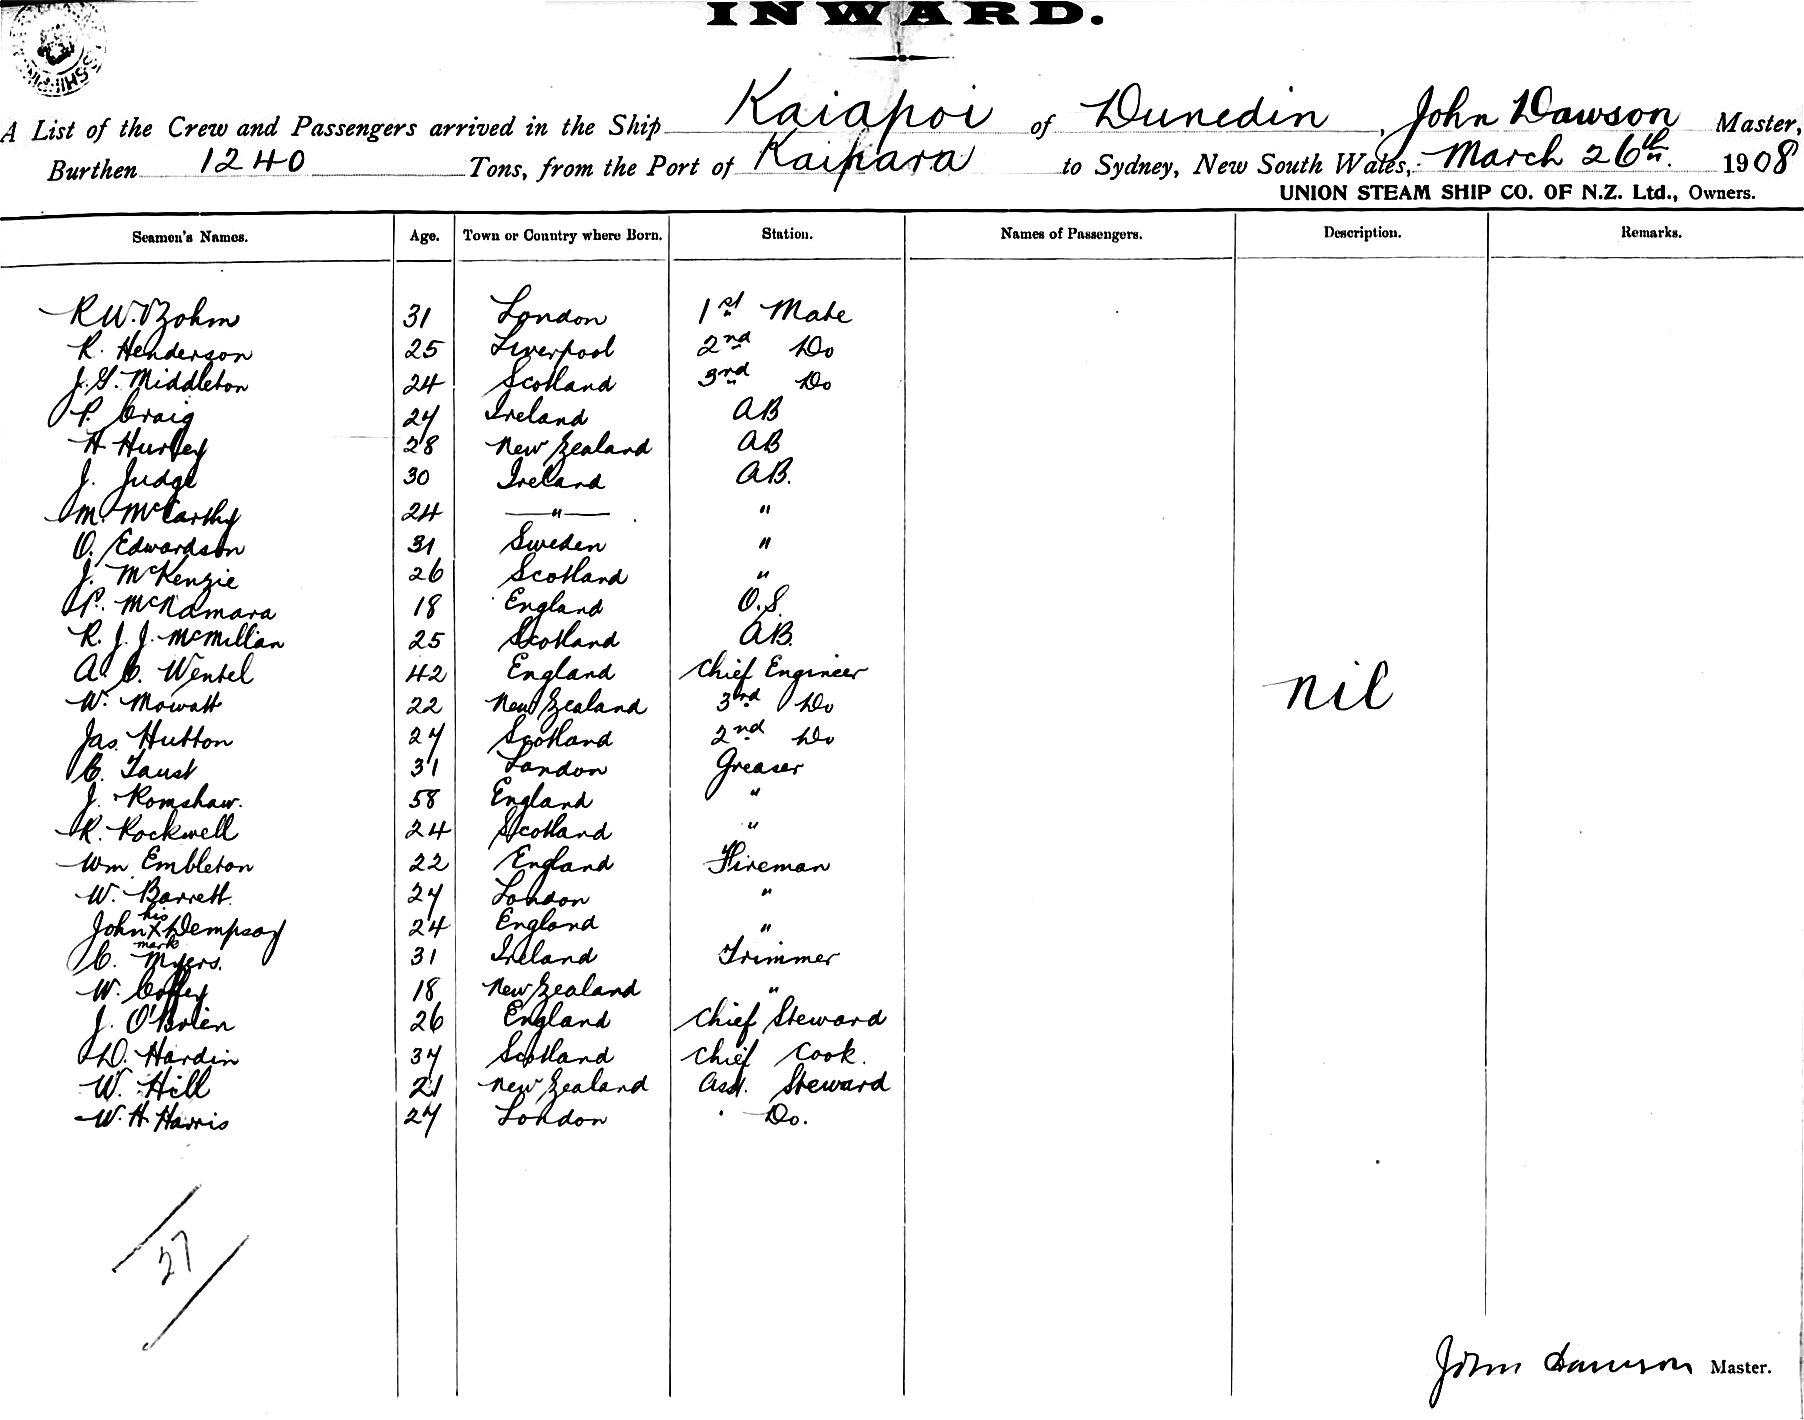 INWARD.
A List of the Crew and Passengers arrived in the Ship Kaiapoi of Dunedin, John Dawson Master,
Burthen 1240 Tons, from the Port of Kaipara to Sydney, New South Wales, March 26th. 1908
UNION STEAM SHIP CO. OF N.Z. Ltd., Owners.
Seamen's Names. Age. Town or Country where Born. Station. Names of Passengers. Description. Remarks.
R W. Bohm 31 London 1st Mate
R. Henderson 25 Liverpool 2nd Do
J. G. Middleton 24 Scotland 3rd Do
P. Craig 27 Ireland AB
H Hurley 28 New Zealand AB
J. Judge 30 Ireland AB.
M. McCarthy 24 " "
O. Edwardson 31 Sweden "
J. McKenzie 26 Scotland "
P. McNamara 18 England O.S.
R. J. J. McMillan 25 Scotland AB.
A. C. Wentel 42 England Chief Engineer
nil
W. Mowatt 22 New Zealand 3rd Do
Jas. Hutton 27 Scotland 2nd Do
C. Faust 31 London Greaser
J. Romshaw. 58 England "
R. Rockwell 24 Scotland "
Wm Embleton 22 England Fireman
W. Barrett. 27 London "
his
John X Dempsey 24 England "
mark
C. Myers. 31 Ireland Trimmer
W. Coffey 18 New Zealand "
J. O'Brien 26 England Chief Steward
D. Hardin 37 Scotland Chief Cook.
W. Hill 21 New Zealand Asst. Steward
W. H. Harris 27 London Do.
27
John Dawson Master.